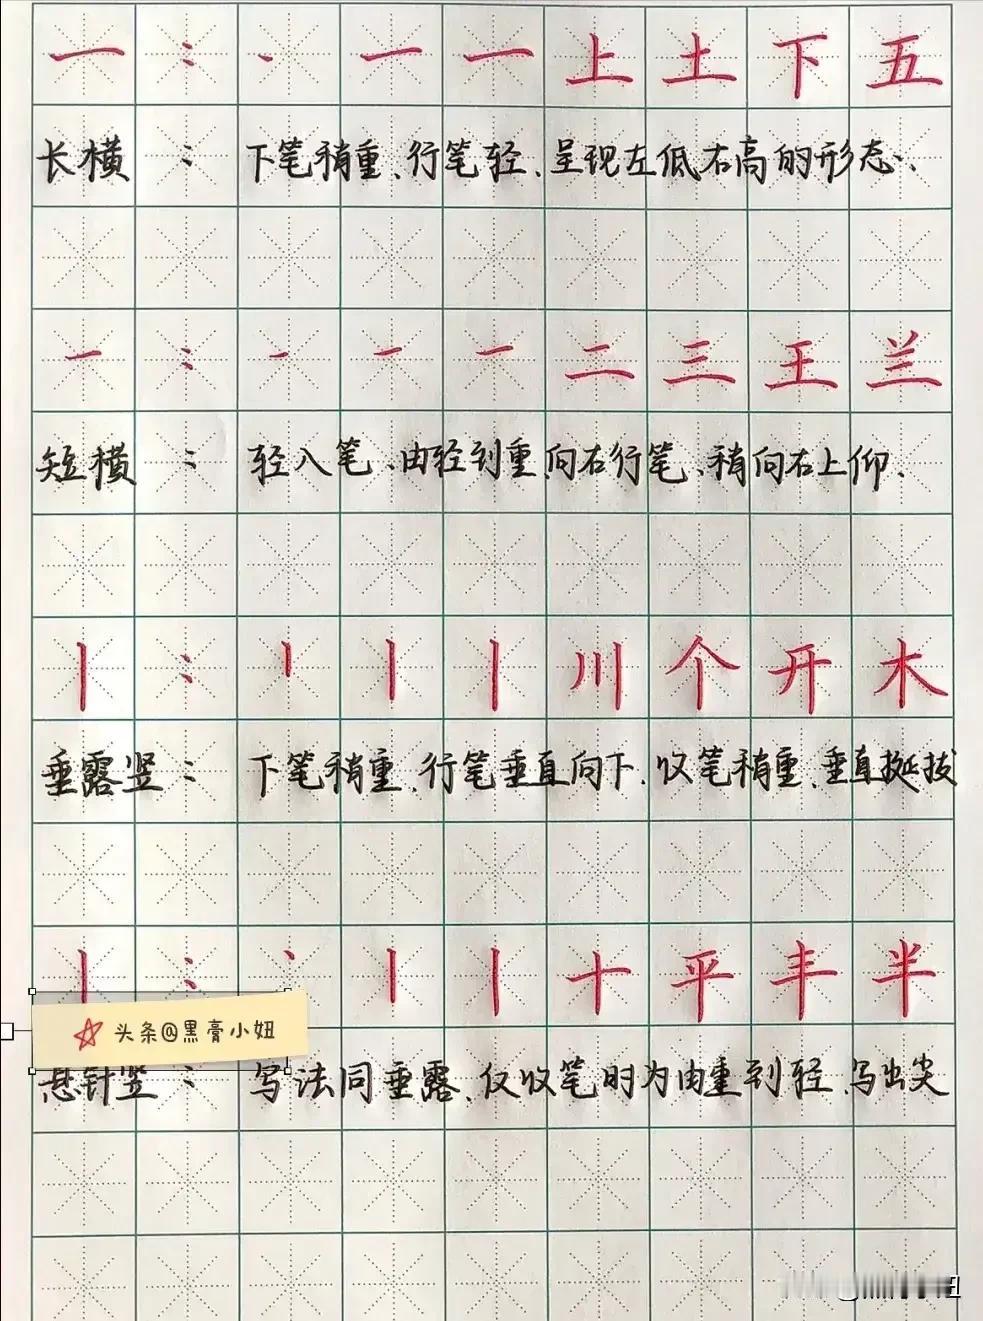 一 : 丶 一 一 上 土 下 五
长横 : 下笔稍重、行笔轻、呈现左低右高的形态、
一 : 一 一 一 二 三 王 兰
短横 : 轻入笔、由轻到重向右行笔、稍向右上仰.
丨 : 丨 丨 丨 川 个 开 木
垂露竖 : 下笔稍重、行笔垂直向下、收笔稍重、垂直挺拔
丨 : 丶 丨 丨 十 平 丰 半
头条@黑膏小妞
悬针竖 : 写法同垂露、仅收笔时为由重到轻、写出尖